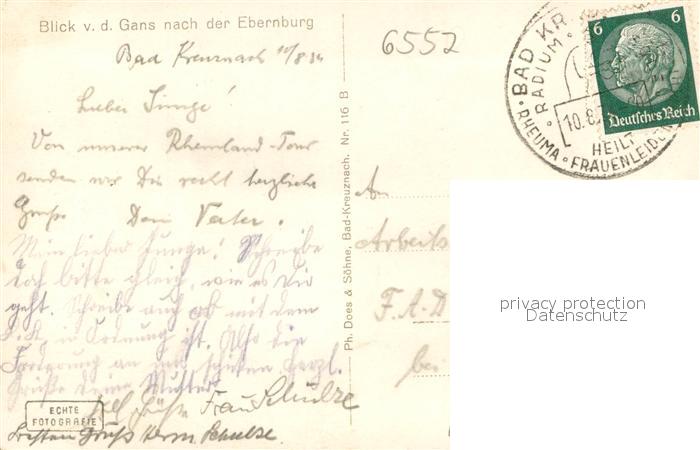 Blick v. d. Gans nach der Ebernburg
6552
Bad Kreuznach 10/8 34
Lieber Junge!
Von unserer Rheinland-Tour
senden wir Dir recht herzliche
Grüße Dein Vater.
Mein lieber Junge! Schreibe
doch bitte gleich, wie es Dir
geht. Schreibe auch ob mit dem
in Ordnung ist. Also die
an und schicken herzl.
Grüße deine Mutter
Grüße Frau Schulze
Besten Gruß Herm Schulze
ECHTE
FOTOGRAFIE
Ph. Does & Söhne, Bad-Kreuznach. Nr. 116 B
BAD KR
RADIUM
10.8.
HEIL
RHEUMA • FRAUENLEIDE
6 6
Deutsches Reich
An
Arbeits
F.A.D
bei
privacy protection
Datenschutz